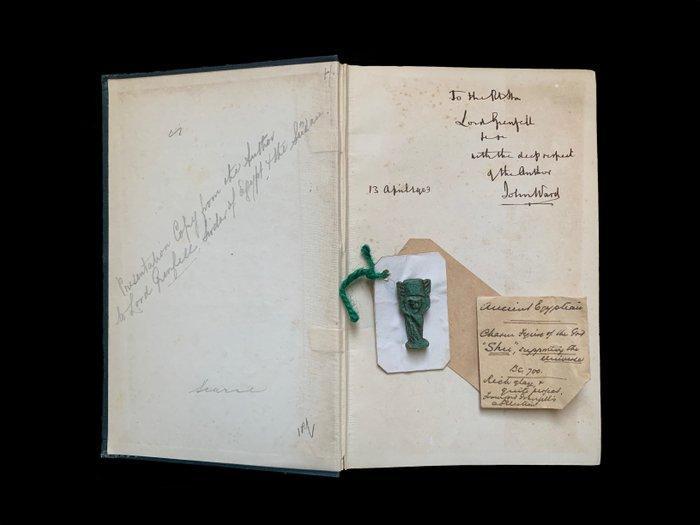 Presentation Copy from the Author
to Lord Grenfell Sirdar of Egypt & the Sudan
Scarce
To the Rt Hon
Lord Grenfell
with the deep respect
of the Author
John Ward
13 April 1903
Ancient Egyptian
Charm figure of the God
"Shu", supporting the
universe
BC. 700.
Rich glaze &
quite perfect,
Lord Grenfell's
collection